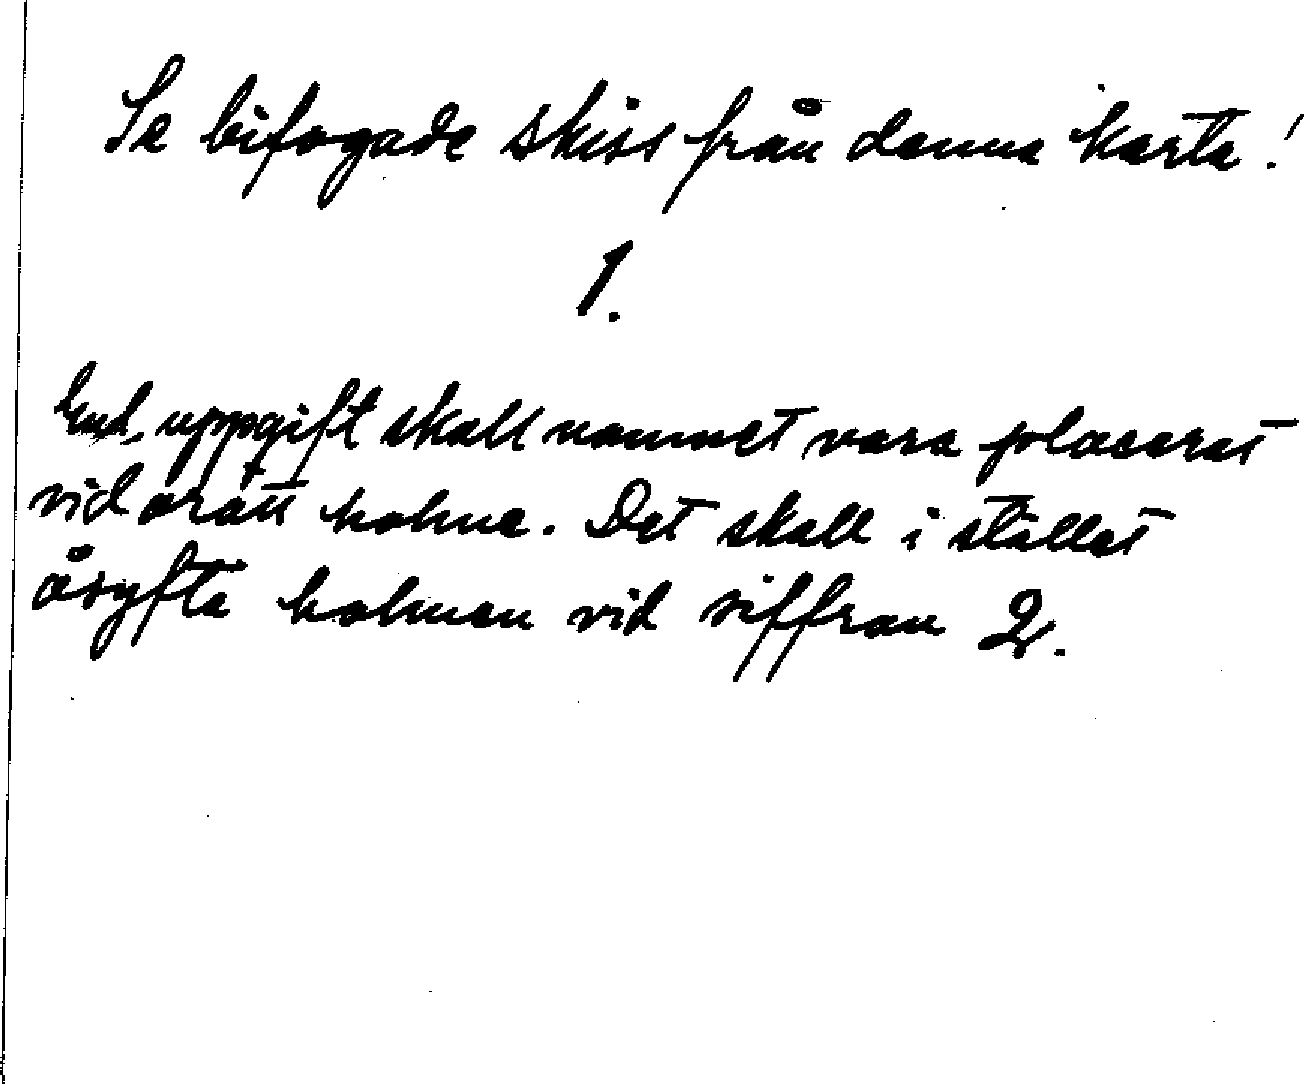 Se bifogade skiss från denna karta!
1.
Enl. uppgift skall namnet vara placerat
vid orätt holme. Det skall i stället
åsyfta holmen vid siffran 2.